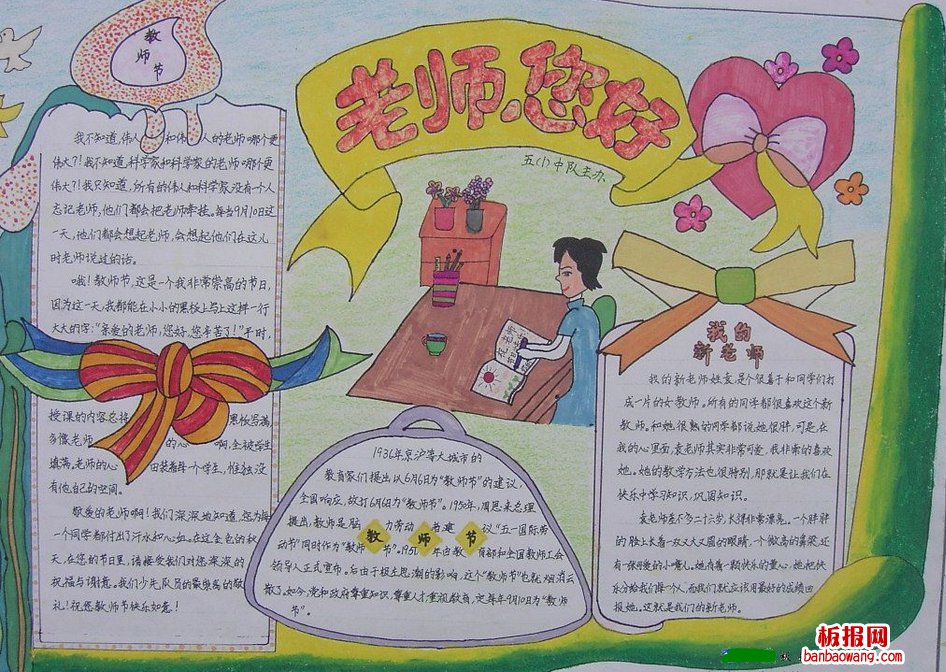 教
师
节
老师,您好
五(1)中队主办
我不知道,伟人 和伟 人的老师哪个更
伟大?!我不知道,科学家和科学家的老师哪个更
伟大?!我只知道,所有的伟人和科学家没有一个人
忘记老师,他们都会把老师牵挂。每当9月10日这
一天,他们都会想起老师,会想起他们在这儿
时老师说过的话。
哦!教师节,这是一个我非常崇高的节日,
因为这一天,我都能在小小的黑板上写上这样一行
大大的字:“亲爱的老师,您好,您辛苦了!”平时,
授课的内容总将 黑板写满
多像老师 的心 啊,全被学生
填满。老师的心 由装着每个学生,惟独没
有他自己的空间。
敬爱的老师啊!我们深深地知道,您为每
一个同学都付出了汗水和心血。在这金色的秋
天,在您的节日里,请接受我们对您深深的
祝福与情意。我们少先队员的最崇高的敬
礼!祝您教师节快乐如意!
1936年京沪等大城市的
教育家们提出以6月6日为“教师节”的建议,
全国响应,故订6月6日为“教师节”。1950年,周恩来总理
提出,教师是脑 力劳动者,建 议“五一国际劳
动节”同时作为“教师 节”。1951 年由教育部和全国教师工会
领导人正式宣布。后由于极左思潮的影响,这个“教师节”也就烟消云
散了。如今,党和政府尊重知识,尊重人才,重视教育,定每年9月10日为“教师
节”。
教 师 节
我的
新老师
我的新老师姓袁,是个很喜于和同学们打
成一片的女教师。所有的同学都很喜欢这个新
教师。和她很熟的同学都说她很胖,可是,在
我的心里面,袁老师其实非常可爱,我非常的喜欢
她。她的教学方法也很特别,那就是让我们在
快乐中学习知识,巩固知识。
袁老师差不多二十六岁,长得非常漂亮。一个胖胖
的脸上长着一双又大又圆的眼睛,一个微高的鼻梁,还
有一张可爱的小嘴儿。她有着一颗快乐的童心,她把快
乐分给我们每一个人,而我们就应该用最好的成绩回
报她。这就是我们的新老师。
板报网
banbaowang.com